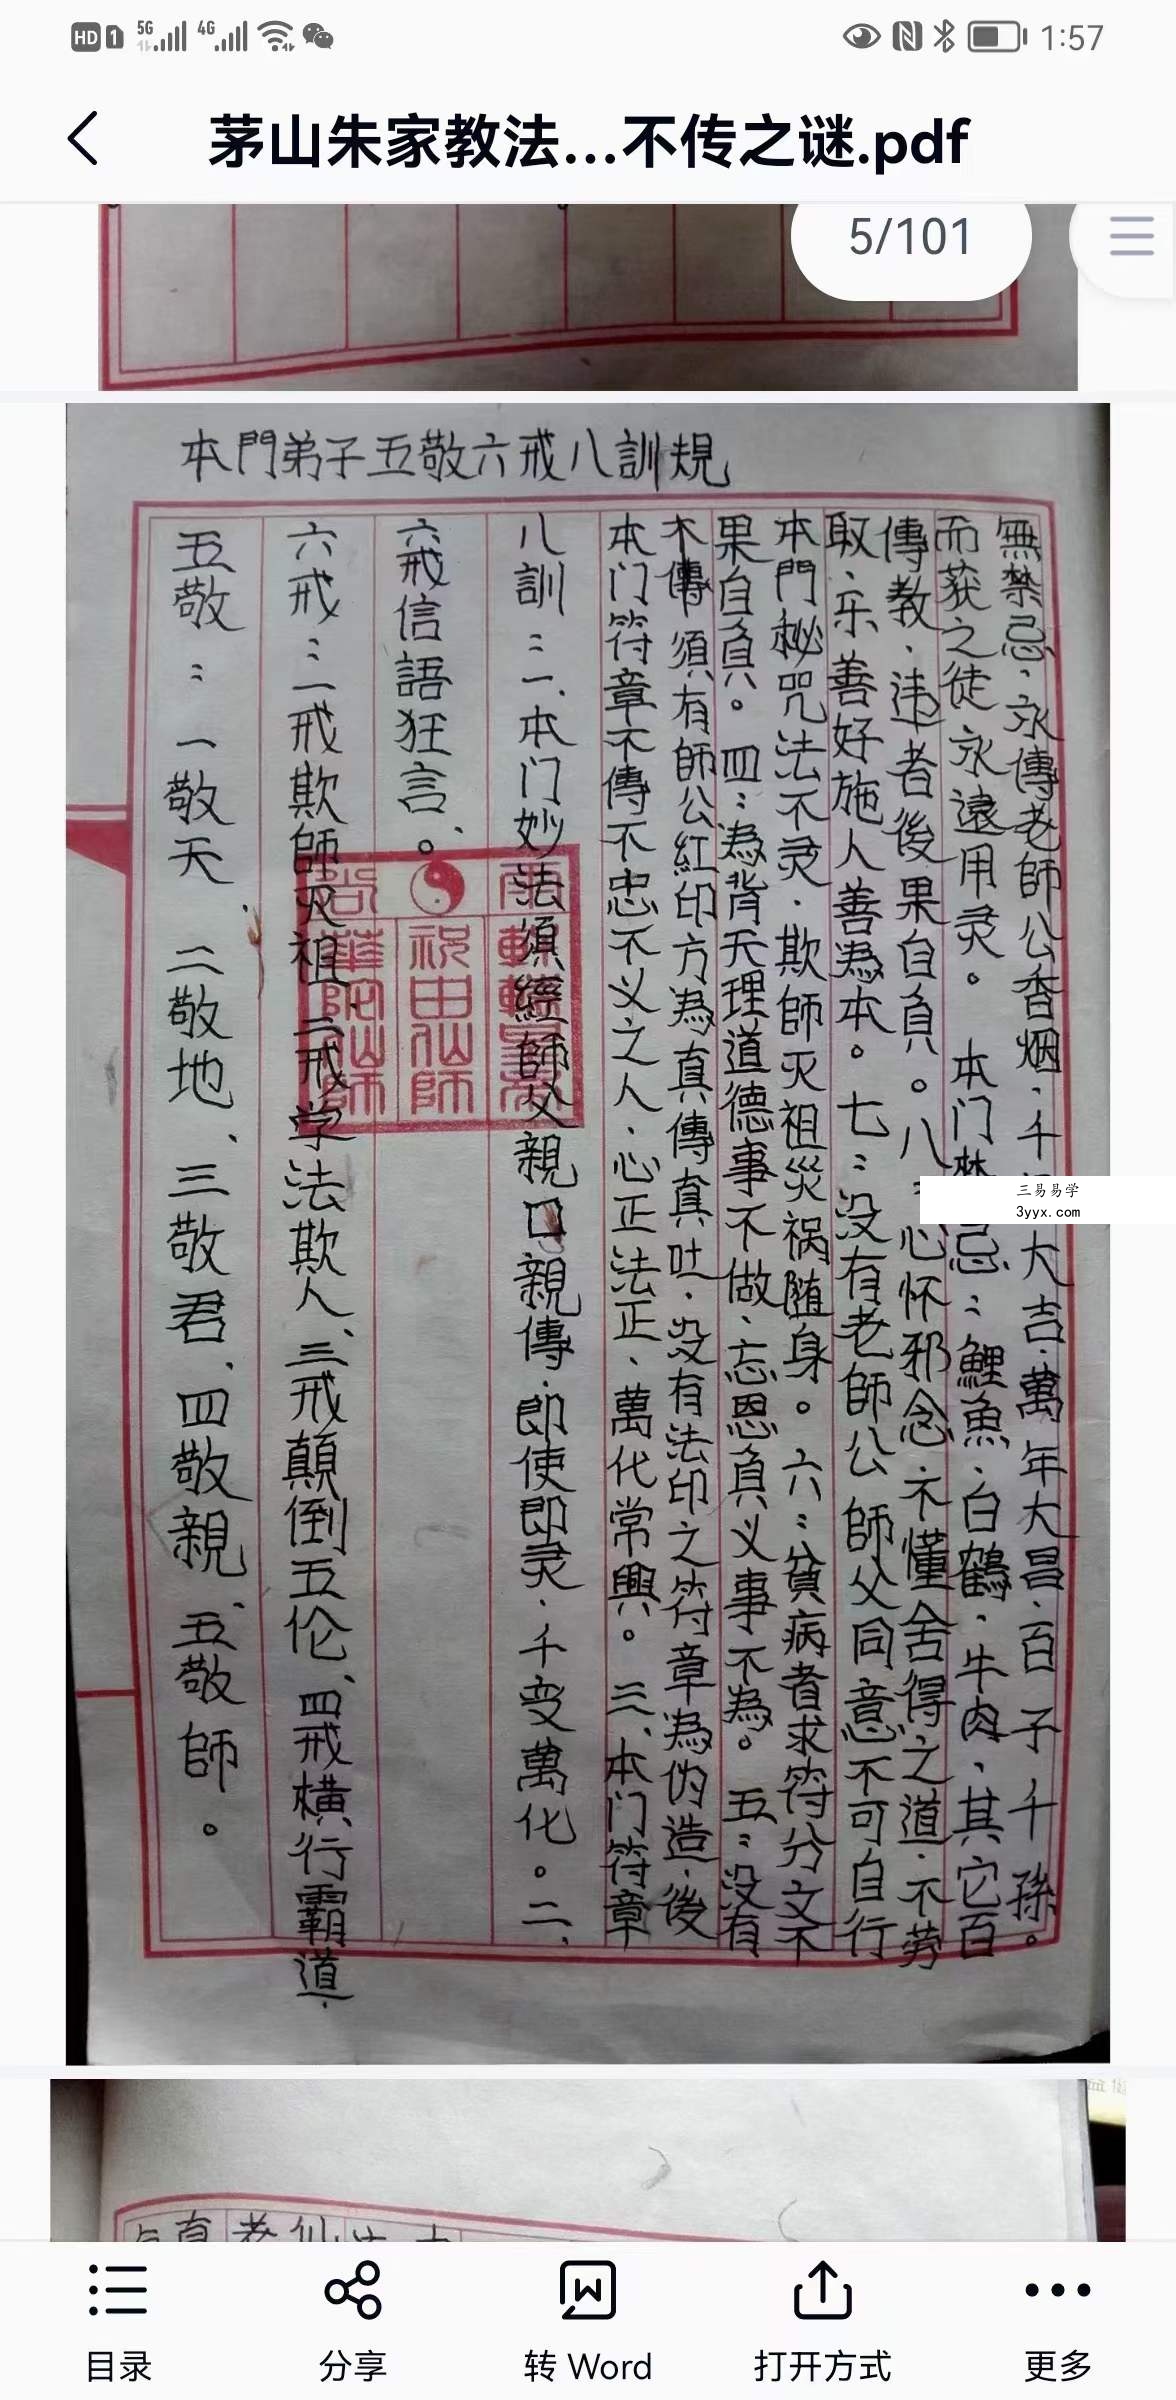 HD 1 5G 4G 1:57
茅山朱家教法...不传之谜.pdf
5/101
本門弟子五敬六戒八訓規
五敬：一敬天 二敬地、三敬君、四敬親、五敬師。
六戒：一戒欺師灭祖、二戒学法欺人、三戒顛倒五伦、四戒横行霸道、
六戒信語狂言。
八訓：一、本门妙法須經師父親口親傳、即使即灵、千变萬化。二、
本门符章不傳不忠不义之人、心正法正、萬化常興。三、本门符章
不傳須有師公紅印方為真傳真吐、没有法印之符章為伪造、後
果自負。四：為背天理道德事不做、忘恩負义事不為。五：没有
本門秘咒法不灵、欺師灭祖災祸随身。六：貧病者求符分文不
取、乐善好施人善為本。七：没有老師公師父同意不可自行
傳教、违者後果自負。八：心怀邪念、不懂舍得之道、不劳
而获之徒永遠用灵。本门禁忌：鯉魚、白鶴、牛肉、其它百
無禁忌、永傳老師公香烟、千大吉、萬年大昌、百子千孫。
祝由仙師
華陀仙師
三易易学
3yyx.com
目录
分享
转 Word
打开方式
更多